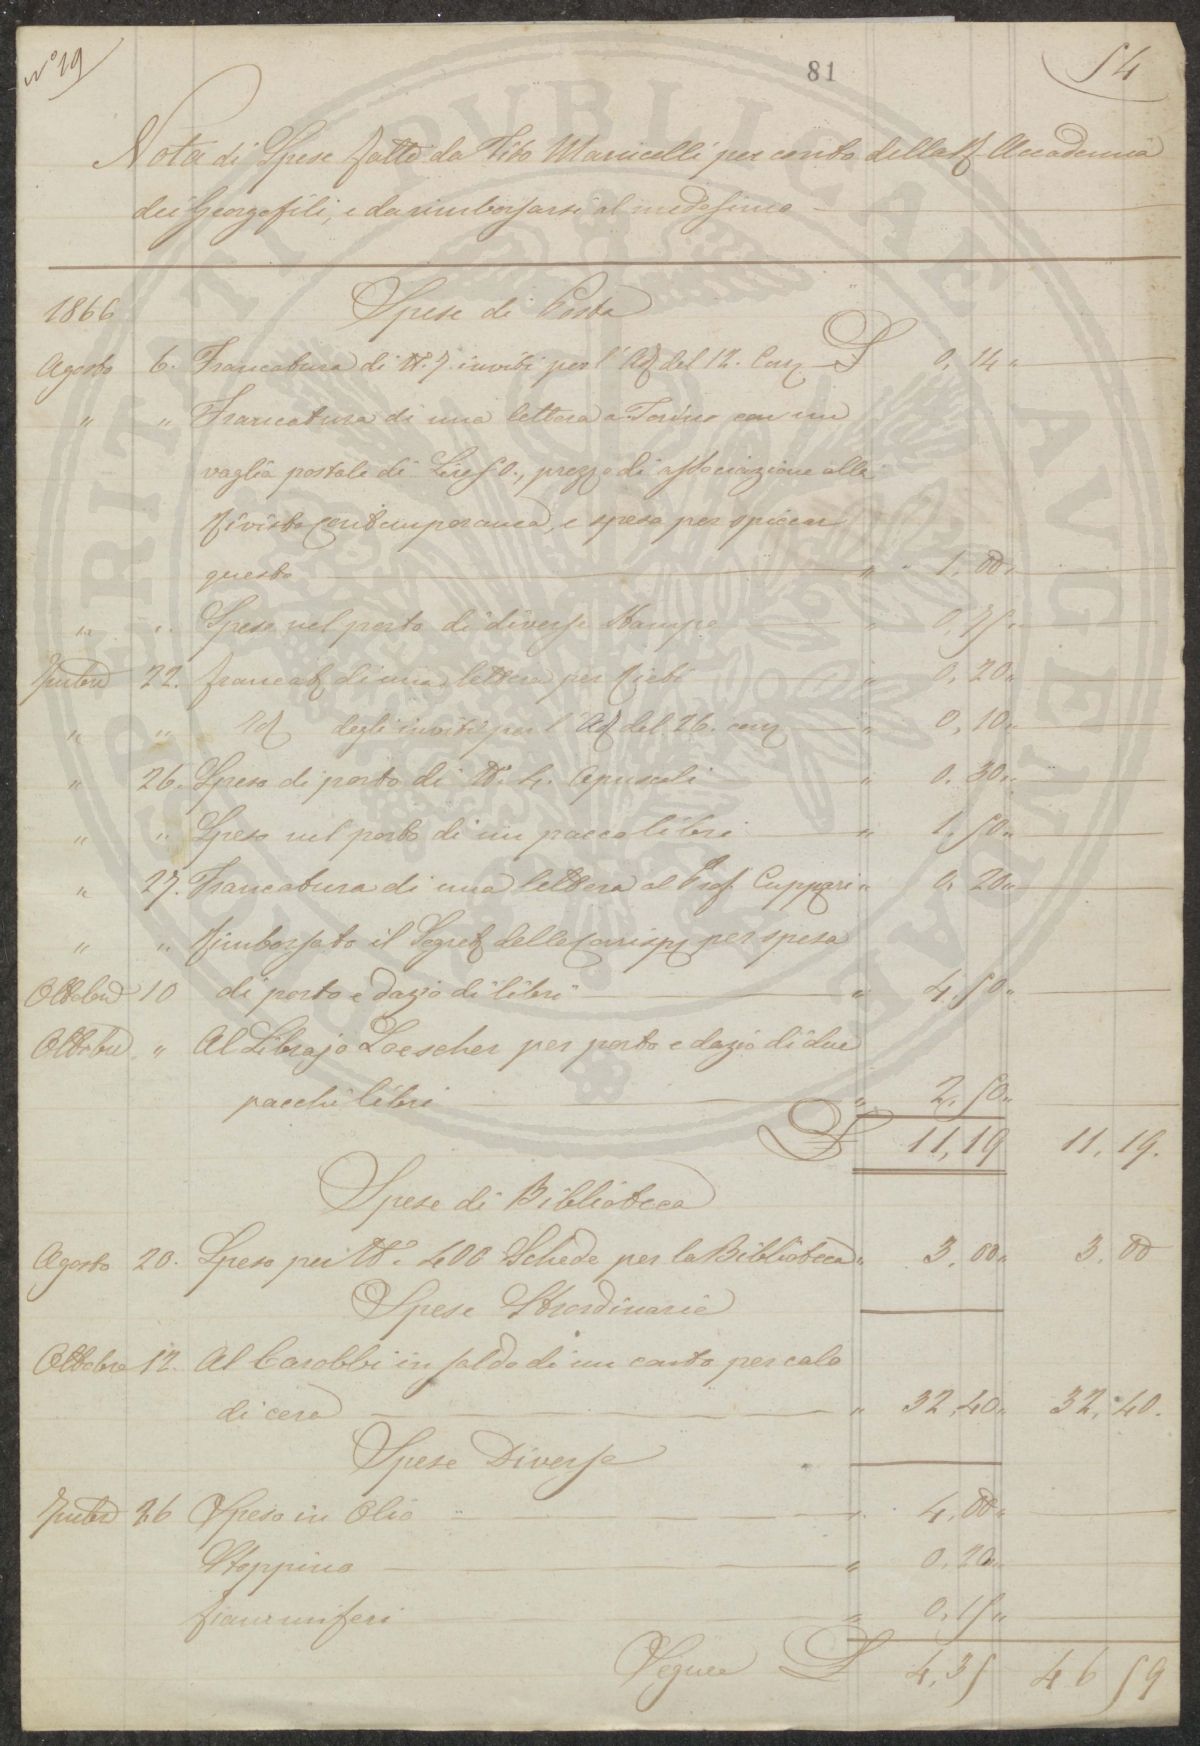 N° 19
81
54
Nota di Spese fatte da Tito Marucelli per conto della R. Accademia
dei Georgofili, e da rimborsarsi al medesimo
PROSPERITATI PVBLICAE AVGENDAE
1866 Spese di Posta
Agosto 6. Francatura di N. 7. inviti per l' Ad. del 12. Corr. £ 0,14 "
" " Francatura di una lettera a Torino con un
vaglia postale di Lire 50., prezzo di associazione alla
Rivista Contemporanea, e spesa per spiccar
questo " 1,00 "
" " Spese nel porto di diverse Stampe " 0,75 "
22. francat. di una lettera per Rieti " 0,20 "
" " Id. degli inviti per l' Ad. del 26. corr. " 0,10 "
" 26. Speso di porto di N. 4. Opuscoli " 0,30 "
" " Speso nel porto di un pacco libri " 1,50 "
" 27. Francatura di una lettera al Prof. Cuppari " 0,20 "
" " Rimborsato il Segret. delle Corrisp. per spesa
Ottobre 10 di porto e dazio di libri " 4,50 "
Ottobre " Al Librajo Loescher per porto e dazio di due
pacchi libri " 2,50 "
£ 11,19 11,19.
Spese di Biblioteca
Agosto 20. Speso per N. 400 Schede per la Biblioteca " 3,00 " 3,00
Spese Straordinarie
Ottobre 12. Al Carobbi in saldo di un conto per calo
di cera " 32,40 " 32,40.
Spese Diverse
26 Speso in Olio " 4,00 "
Stoppino " 0,20 "
fiammiferi " 0,15 "
Segue £ 4,35 46 59